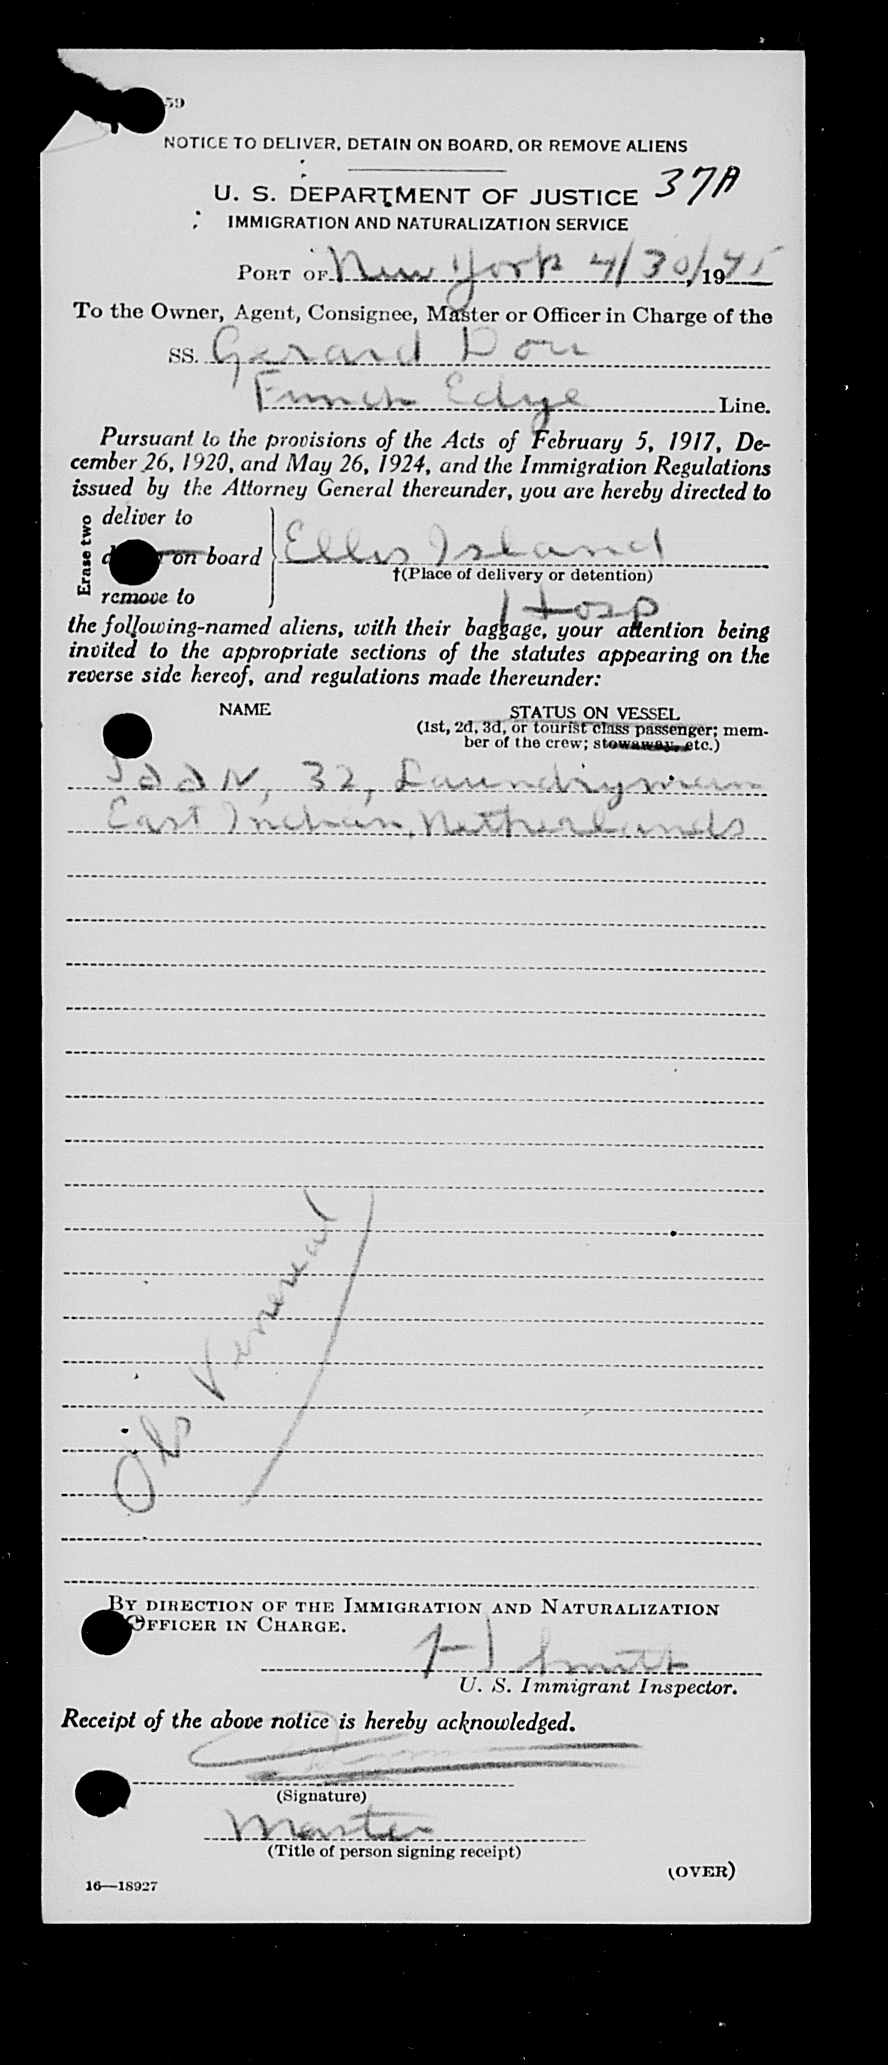 59
NOTICE TO DELIVER, DETAIN ON BOARD, OR REMOVE ALIENS
U. S. DEPARTMENT OF JUSTICE 37A
IMMIGRATION AND NATURALIZATION SERVICE
PORT OF New York 4/30/1945
To the Owner, Agent, Consignee, Master or Officer in Charge of the
SS. Gerard Dou
Funch Edye Line.
Pursuant to the provisions of the Acts of February 5, 1917, De-
cember 26, 1920, and May 26, 1924, and the Immigration Regulations
issued by the Attorney General thereunder, you are hereby directed to
Erase two
deliver to
on board Ellis Island
†(Place of delivery or detention)
remove to Hosp
the following-named aliens, with their baggage, your attention being
invited to the appropriate sections of the statutes appearing on the
reverse side hereof, and regulations made thereunder:
NAME STATUS ON VESSEL
(1st, 2d, 3d, or tourist class passenger; mem-
ber of the crew; stowaway, etc.)
32, Laundryman
East Indian, Netherlands
Venereal
BY DIRECTION OF THE IMMIGRATION AND NATURALIZATION
OFFICER IN CHARGE.
Smith
U. S. Immigrant Inspector.
Receipt of the above notice is hereby acknowledged.
(Signature)
Master
(Title of person signing receipt)
(OVER)
16—18927